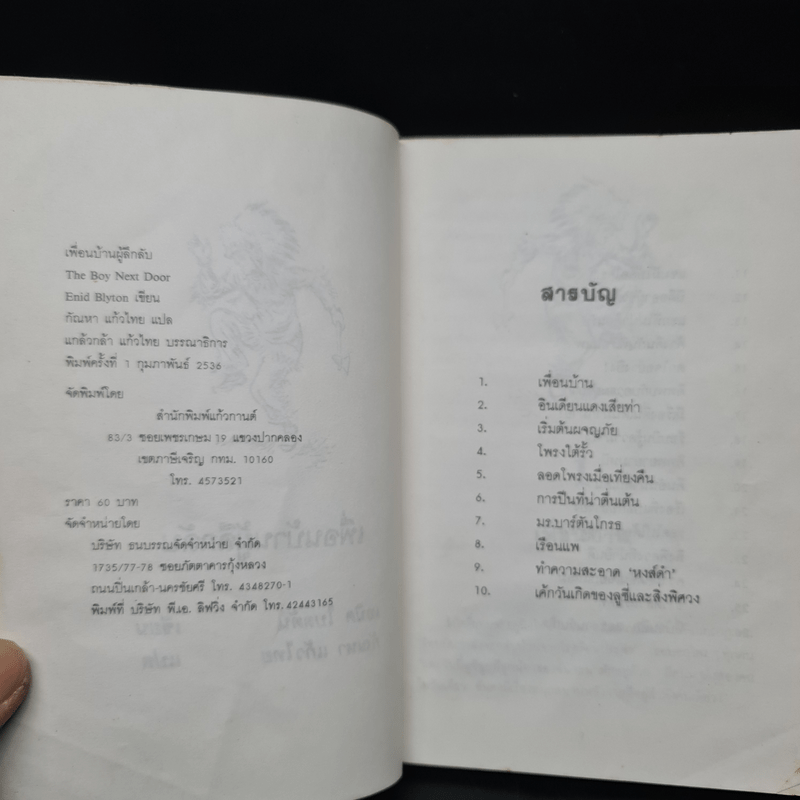 เพื่อนบ้านผู้ลึกลับ
The Boy Next Door
Enid Blyton เขียน
กัณหา แก้วไทย แปล
แกล้วกล้า แก้วไทย บรรณาธิการ
พิมพ์ครั้งที่ 1 กุมภาพันธ์ 2536
จัดพิมพ์โดย
สำนักพิมพ์แก้วกานต์
83/3 ซอยเพชรเกษม 19 แขวงปากคลอง
เขตภาษีเจริญ กทม. 10160
โทร. 4573521
ราคา 60 บาท
จัดจำหน่ายโดย
บริษัท ธนบรรณจัดจำหน่าย จำกัด
1735/77-78 ซอยภัตตาคารกุ้งหลวง
ถนนปิ่นเกล้า-นครชัยศรี โทร. 4348270-1
พิมพ์ที่ บริษัท พี.เอ. ลิฟวิ่ง จำกัด โทร. 42443165
สารบัญ
1. เพื่อนบ้าน
2. อินเดียนแดงเสียท่า
3. เริ่มต้นผจญภัย
4. โพรงใต้รั้ว
5. ลอดโพรงเมื่อเที่ยงคืน
6. การปีนที่น่าตื่นเต้น
7. มร.บาร์ตันโกรธ
8. เรือนแพ
9. ทำความสะอาด 'หงส์ดำ'
10. เค้กวันเกิดของลูซี่และสิ่งพิศวง